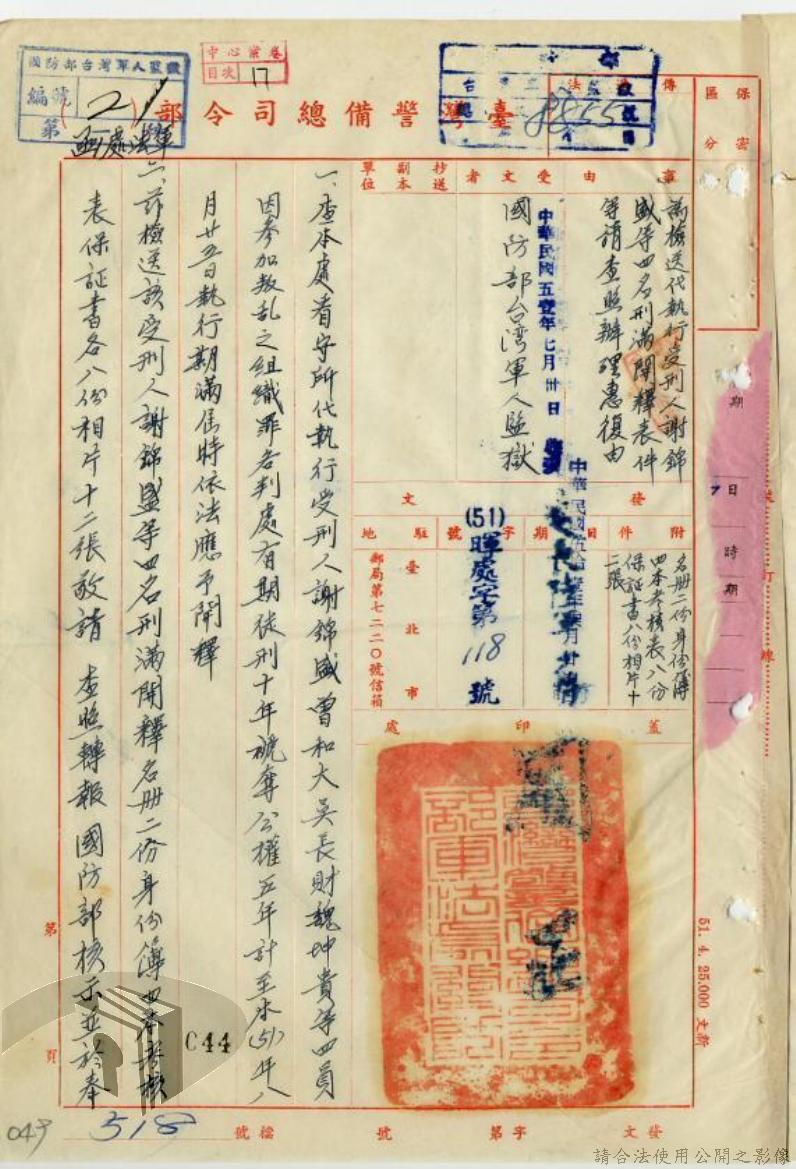 國防部台灣軍人監獄
編號
第
(2)
中心黨卷
目次 17
臺灣警備總司令部
軍法處函
8855
傳
法
保密
區分
期
7日
時
期
事由
為檢送代執行受刑人謝錦
盛等四名刑滿開釋表件
等請查照辦理惠復由
受文者
國防部台湾軍人監獄
中華民國五壹年七月卅日
抄送
副本
單位
發文
附件
名册二份身份簿
四本考核表八份
保証書八份相片十
二張
日期
字號
(51)
暉處字第
118
號
駐地
臺北市
郵局第七二二〇號信箱
蓋印處
一、查本處看守所代執行受刑人謝錦盛曾和大吳長財魏坤貴等四員
因參加叛乱之組織罪各判處有期徒刑十年褫奪公權五年計至本(51)年八
月廿五日執行期滿屆時依法應予開釋
二、茲檢送該受刑人謝錦盛等四名刑滿開釋名册二份身份簿四本考核
表保証書各八份相片十二張敬請 查照轉報國防部核示並於奉
第
頁
裝訂線
51. 4. 25.000 文新
C44
049
518
檔號
號
發文字第
請合法使用公開之影像